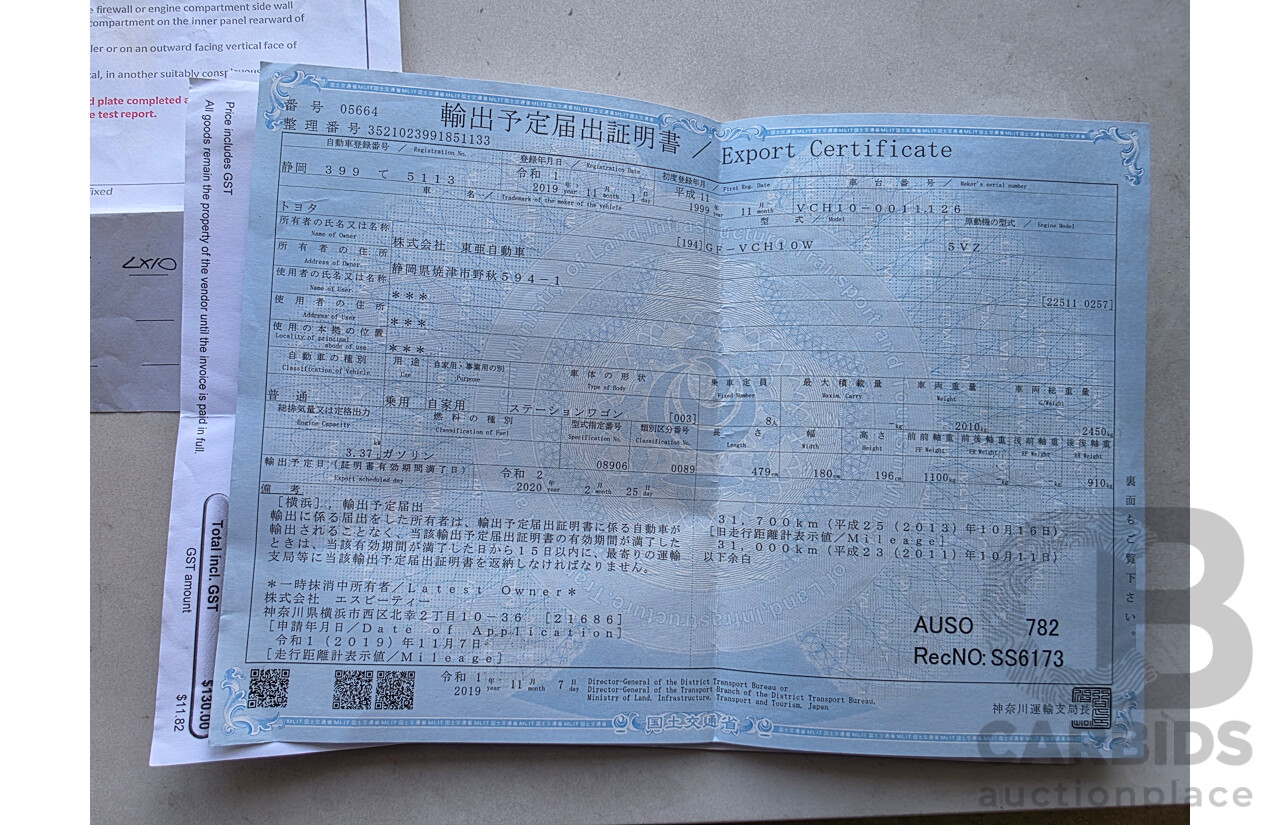 e firewall or engine compartment side wall
compartment on the inner panel rearward of
ler or on an outward facing vertical face of
tal, in another suitably
d plate completed a
e test report.
fixed
LX10
Price includes GST
All goods remain the property of the vendor until the invoice is paid in full.
Total incl. GST
$130.00
GST amount
$11.82
番号 05664
整理番号 3521023991851133
輸出予定届出証明書 / Export Certificate
自動車登録番号 / Registration No.
登録年月日 / Registration Date
初度登録年月 / First Reg. Date
車台番号 / Maker's serial number
静岡 399 て 5113
令和 1
2019 年 year 11 月 month 1 日 day
平成 11
1999 年 year 11 月 month
VCH10-0011126
車名 / Trademark of the maker of the vehicle
型式 / Model
原動機の型式 / Engine Model
トヨタ
[194] GF-VCH10W
5VZ
所有者の氏名又は名称
Name of Owner
株式会社 東亜自動車
所有者の住所
Address of Owner
静岡県焼津市野秋594-1
[22511 0257]
使用者の氏名又は名称
Name of User
***
使用者の住所
Address of User
***
使用の本拠の位置
Locality of principal abode of use
***
自動車の種別
Classification of Vehicle
用途
Use
自家用・事業用の別
Purpose
車体の形状
Type of Body
乗車定員
Fixed Number
最大積載量
Maxim. Carry
車両重量
Weight
車両総重量
G/Weight
普通
乗用
自家用
ステーションワゴン
[003]
8人
-kg
2010kg
2450kg
総排気量又は定格出力
Engine Capacity
燃料の種別
Classification of Fuel
型式指定番号
Specification No.
類別区分番号
Classification No.
長さ
Length
幅
Width
高さ
Height
前前軸重
FF Weight
前後軸重
FR Weight
後前軸重
RF Weight
後後軸重
RR Weight
kW
3.37
ガソリン
08906
0089
479cm
180cm
196cm
1100kg
-kg
-kg
910kg
輸出予定日(証明書有効期間満了日)
Export scheduled day
令和 2
2020 年 year 2 月 month 25 日 day
備考
[横浜], 輸出予定届出
輸出に係る届出をした所有者は、輸出予定届出証明書に係る自動車が
輸出されることなく、当該輸出予定届出証明書の有効期間が満了した
ときは、当該有効期間が満了した日から15日以内に、最寄りの運輸
支局等に当該輸出予定届出証明書を返納しなければなりません。
*一時抹消中所有者/Latest Owner*
株式会社 エスビーティー
神奈川県横浜市西区北幸2丁目10-36 [21686]
[申請年月日/Date of Application]
令和1(2019)年11月7日
[走行距離計表示値/Mileage]
31,700km(平成25(2013)年10月16日)
[旧走行距離計表示値/Mileage]
31,000km(平成23(2011)年10月11日)
以下余白
裏面もご覧下さい。
AUSO 782
RecNO: SS6173
令和 1
2019 年 year 11 月 month 7 日 day
Director-General of the District Transport Bureau or
Director-General of the Transport Branch of the District Transport Bureau,
Ministry of Land, Infrastructure, Transport and Tourism, Japan
神奈川運輸支局長
国土交通省
CARBIDS
auctionplace